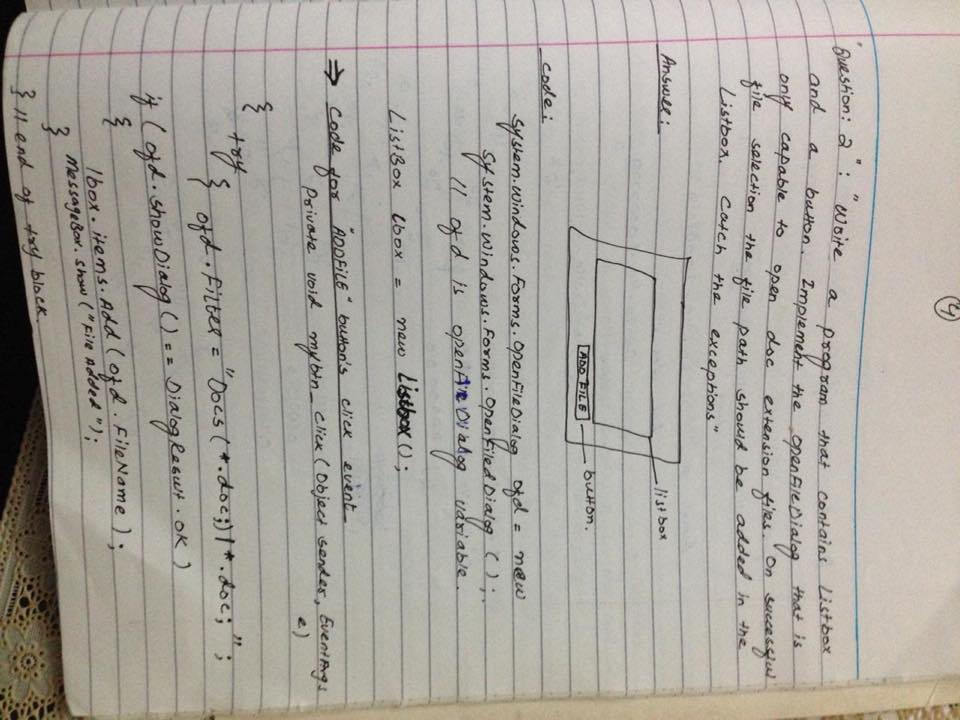 (4)
"Question: 2": "Write a program that contains Listbox
and a button. Implement the openFileDialog that is
only capable to open doc extension files. On successful
file selection the file path should be added in the
Listbox. catch the exceptions"
Answer:
listbox
ADD FILE
button.
code:
System.Windows.Forms.OpenFileDialog ofd = new
System.Windows.Forms.OpenFileDialog ();
// ofd is openFileDialog variable.
ListBox lbox = new Listbox();
⇒ Code for "ADDFILE" button's click event
private void mybtn_click (Object sender, EventArgs
e)
{
try
{ ofd.Filter = "Docs (*.doc;)|*.doc; ";
if (ofd.showDialog () == DialogResult.OK)
{
lbox.items.Add (ofd.FileName);
MessageBox.show ("File Added");
}
} // end of try block.